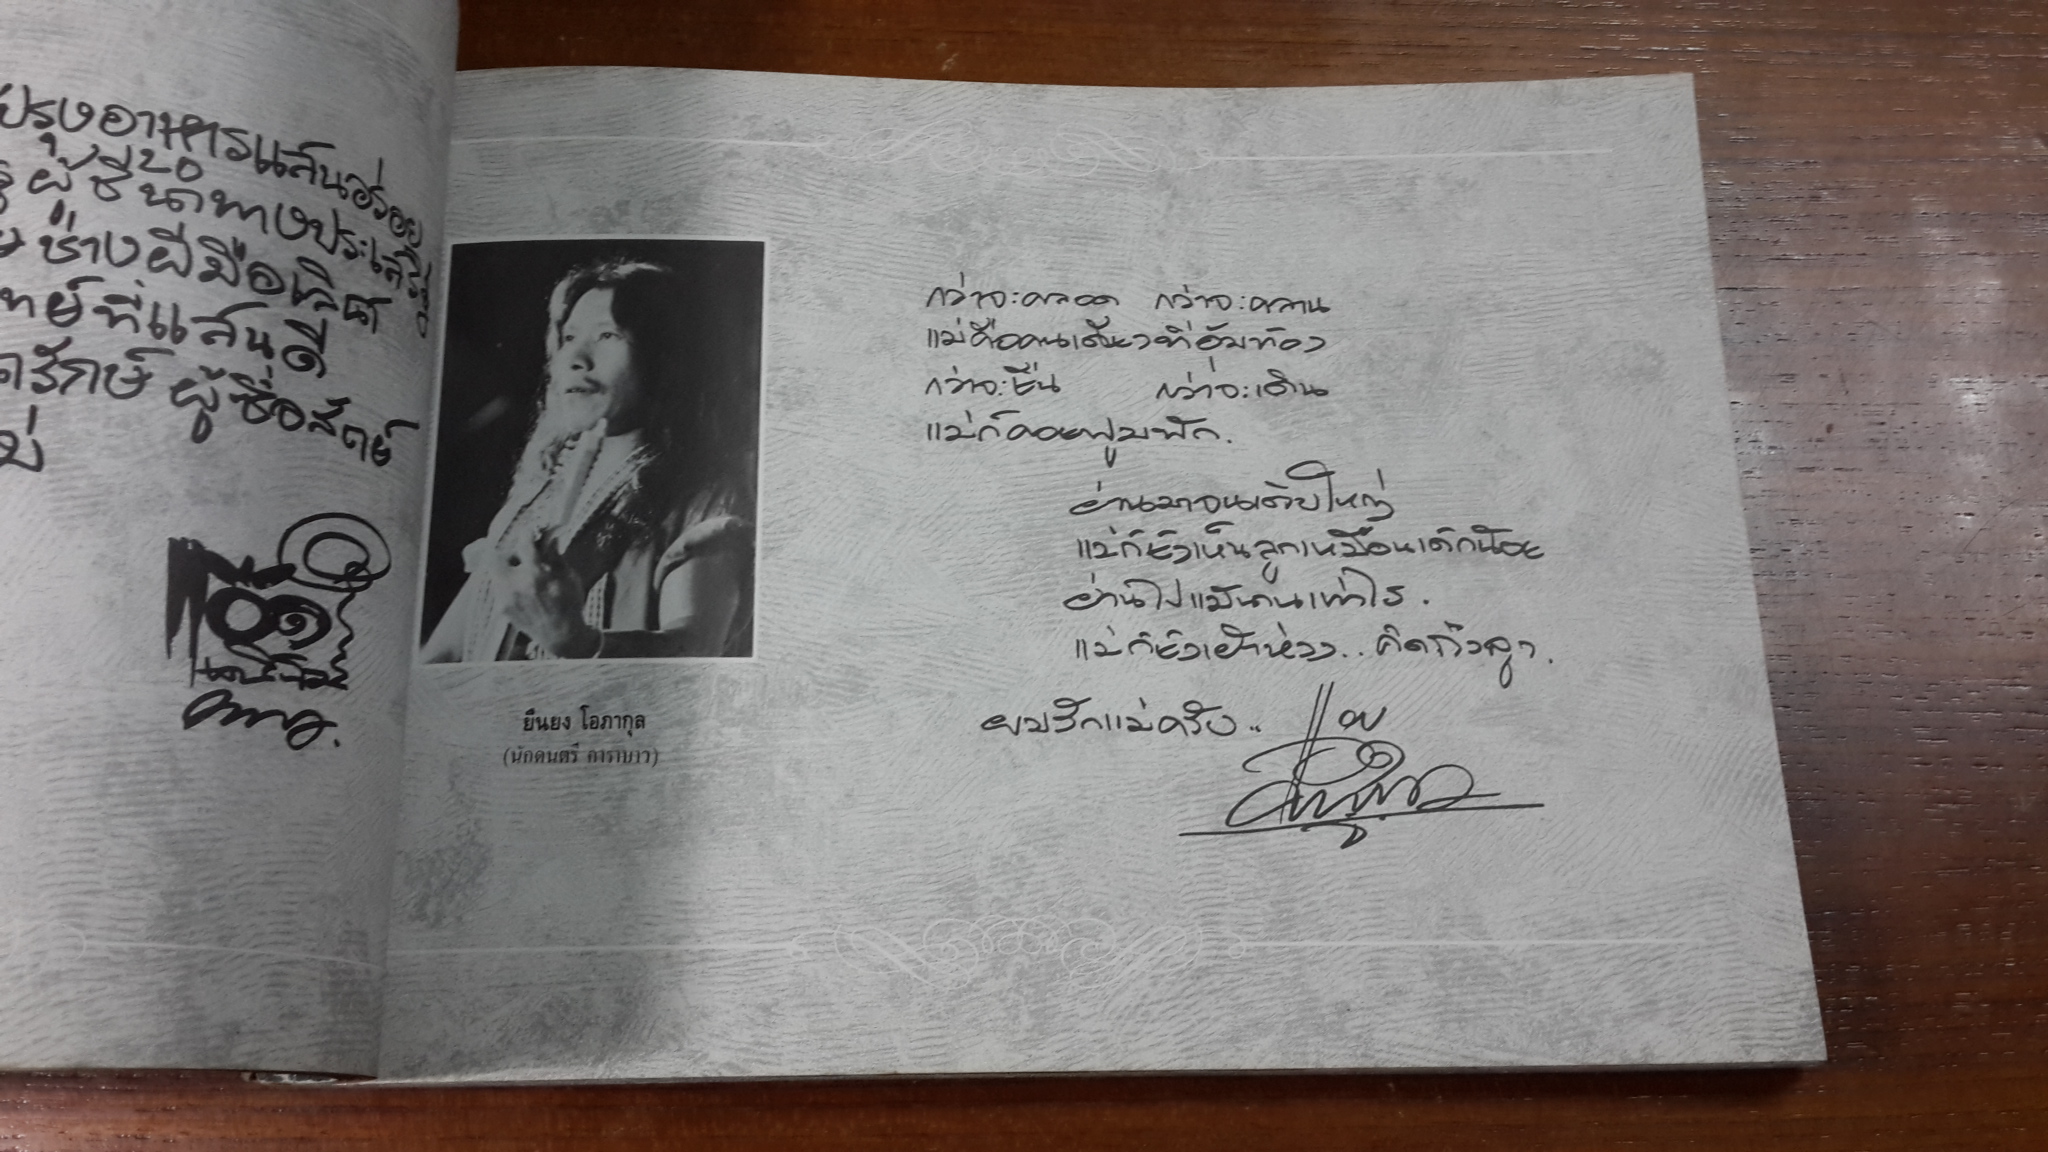 ปรุงอาหารแสนอร่อย
ผู้ชี้นำทางประเสริฐ
ช่างฝีมือเลิศ
ที่แสนดี
ผู้ซื่อสัตย์
ยืนยง โอภากุล
(นักดนตรี คาราบาว)
กว่าจะคลอด กว่าจะคลาน
แม่คือคนเดียวที่อุ้มท้อง
กว่าจะยืน กว่าจะเดิน
แม่ก็คอยฟูมฟัก.
ผ่านมาจนเติบใหญ่
แม่ก็ยังเห็นลูกเหมือนเด็กน้อย
ผ่านไปแม้นานเท่าไร.
แม่ก็ยังเฝ้าห่วง.. คิดถึงลูก.
ผมรักแม่ครับ..
แอ๊ด